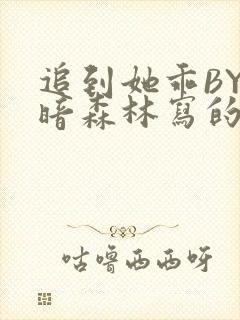 追到她乖BY
暗森林寫的
咕噜西西呀